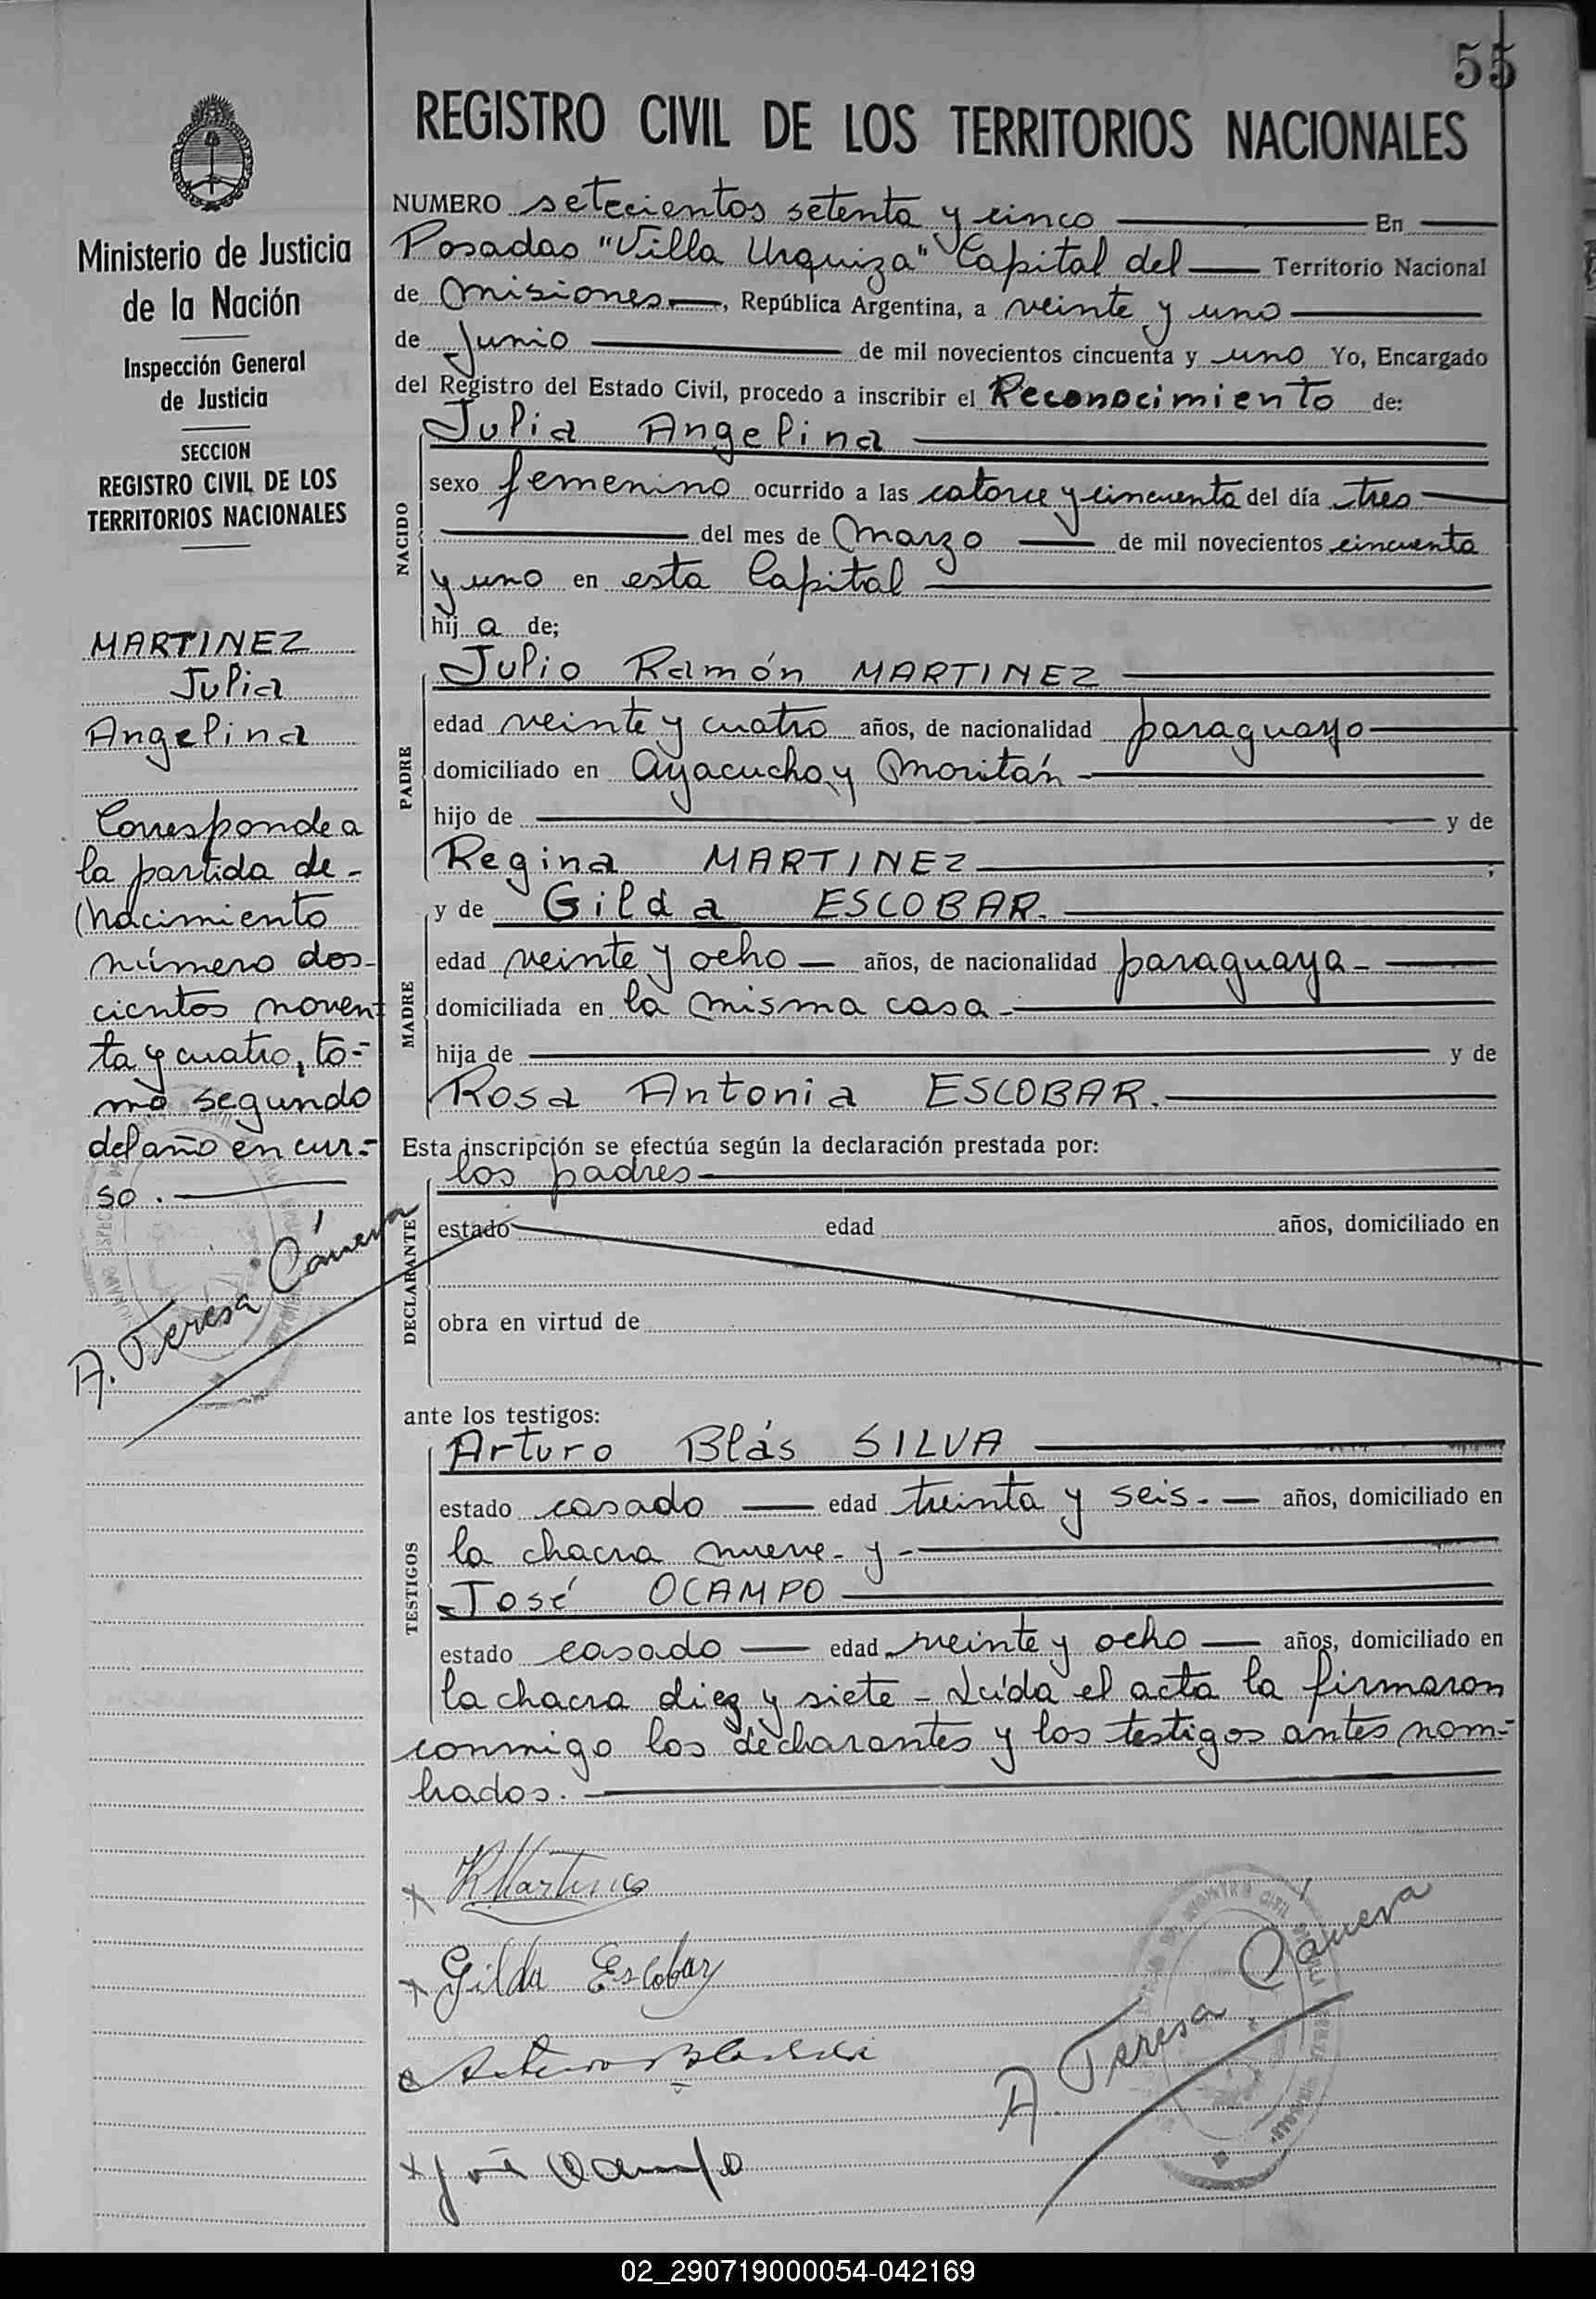 55
REGISTRO CIVIL DE LOS TERRITORIOS NACIONALES
Ministerio de Justicia
de la Nación
Inspección General
de Justicia
SECCION
REGISTRO CIVIL DE LOS
TERRITORIOS NACIONALES
MARTINEZ
Julia
Angelina
Corresponde a
la partida de -
Nacimiento
número dos-
cientos noven-
ta y cuatro, to=
mo segundo
del año en cur=
so.
A. Teresa Cánera
NUMERO setecientos setenta y cinco En
Posadas "Villa Urquiza" Capital del Territorio Nacional
de Misiones, República Argentina, a veinte y uno
de Junio de mil novecientos cincuenta y uno Yo, Encargado
del Registro del Estado Civil, procedo a inscribir el Reconocimiento de:
Julia Angelina
NACIDO
sexo femenino ocurrido a las catorce y cincuenta del día tres
del mes de Marzo de mil novecientos cincuenta
y uno en esta Capital
hij a de;
PADRE
Julio Ramón MARTINEZ
edad veinte y cuatro años, de nacionalidad paraguayo
domiciliado en Ayacucho y Moritán
hijo de y de
Regina MARTINEZ ;
MADRE
y de Gilda ESCOBAR.
edad veinte y ocho años, de nacionalidad paraguaya
domiciliada en la misma casa
hija de y de
Rosa Antonia ESCOBAR.
Esta inscripción se efectúa según la declaración prestada por:
los padres
DECLARANTE
estado edad años, domiciliado en
obra en virtud de
ante los testigos:
TESTIGOS
Arturo Blás SILVA
estado casado edad treinta y seis. años, domiciliado en
la chacra nueve y
José OCAMPO
estado casado edad veinte y ocho años, domiciliado en
la chacra diez y siete - Leída el acta la firmaron
conmigo los declarantes y los testigos antes nom=
brados.
x RMartinez
x Gilda Escobar
x José Ocampo
A. Teresa Cánera
02_290719000054-042169